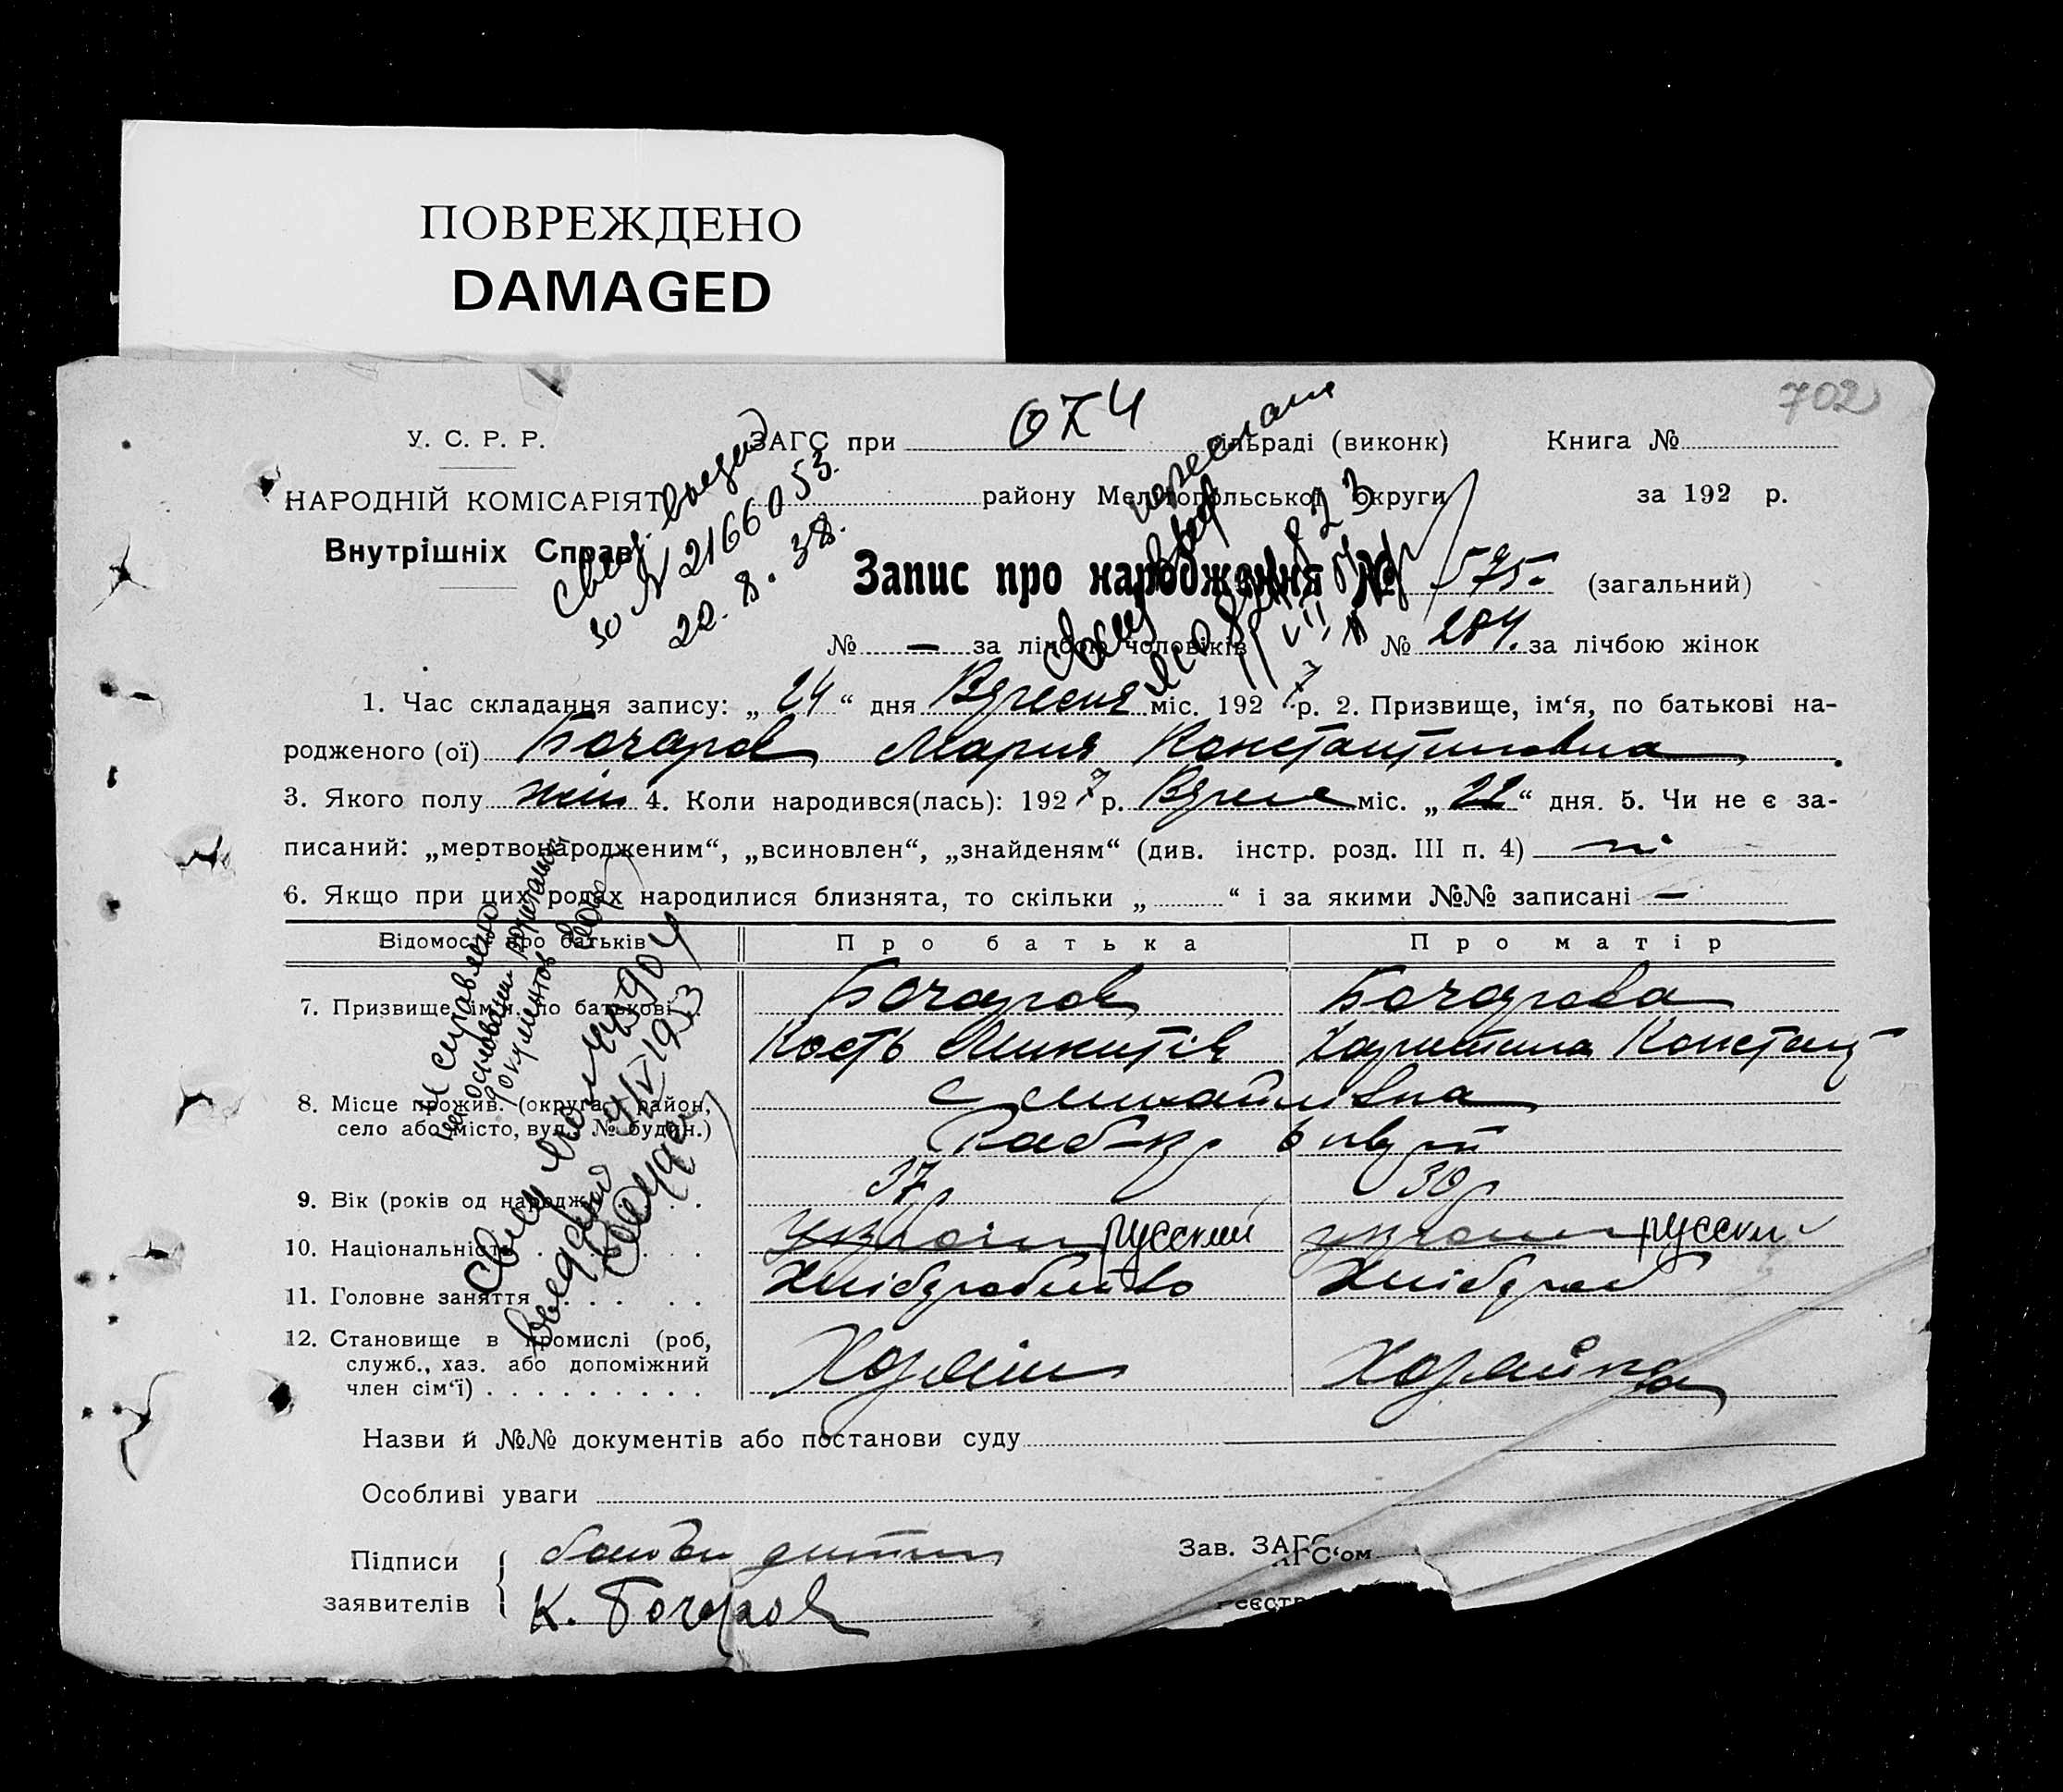 ПОВРЕЖДЕНО
DAMAGED
702
У. С. Р. Р.
ЗАГС при ОКЧ сільраді (виконк)
Книга №
НАРОДНІЙ КОМІСАРІЯТ
району Мелітопольської округи
за 192 р.
Внутрішніх Справ
Запис про народження № 575 (загальний)
№ — за лічбою чоловіків № 284. за лічбою жінок
1. Час складання запису: „24“ дня Вересня міс. 1927 р. 2. Призвище, ім‘я, по батькові на-
родженого (ої) Бочаров Мария Константиновна
3. Якого полу жін 4. Коли народився(лась): 1927 р. Вересн міс. „22“ дня. 5. Чи не є за-
писаний: „мертвонародженим“, „всиновлен“, „знайденям“ (див. інстр. розд. III п. 4) ні
6. Якщо при цих родах народилися близнята, то скільки „ “ і за якими №№ записані —
Відомості про батьків
Про батька
Про матір
7. Призвище, ім‘я, по батькові
Бочаров
Кость Микитів
Бочарова
Харитина Констант
8. Місце прожив. (округа, район,
село або місто, вул., № будин.)
с Михайлівка
9. Вік (років од народж.)
37 р
30 р
10. Національність
україн русский
україн русски
11. Головне заняття
Хлібробство
Хлібороб
12. Становище в промислі (роб,
служб., хаз. або допоміжний
член сім‘ї)
Хозяїн
Хозяйка
Назви й №№ документів або постанови суду
Особливі уваги
Підписи
заявителів
батько дитини
К. Бочаров
Зав. ЗАГС‘ом
Свид. выдано
за № 216600 53.
22. 8. 38.
Исправлено
на основании
документов
1953